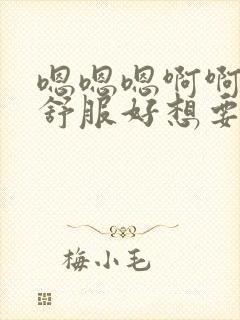 嗯嗯嗯啊啊
舒服好想要
梅小毛